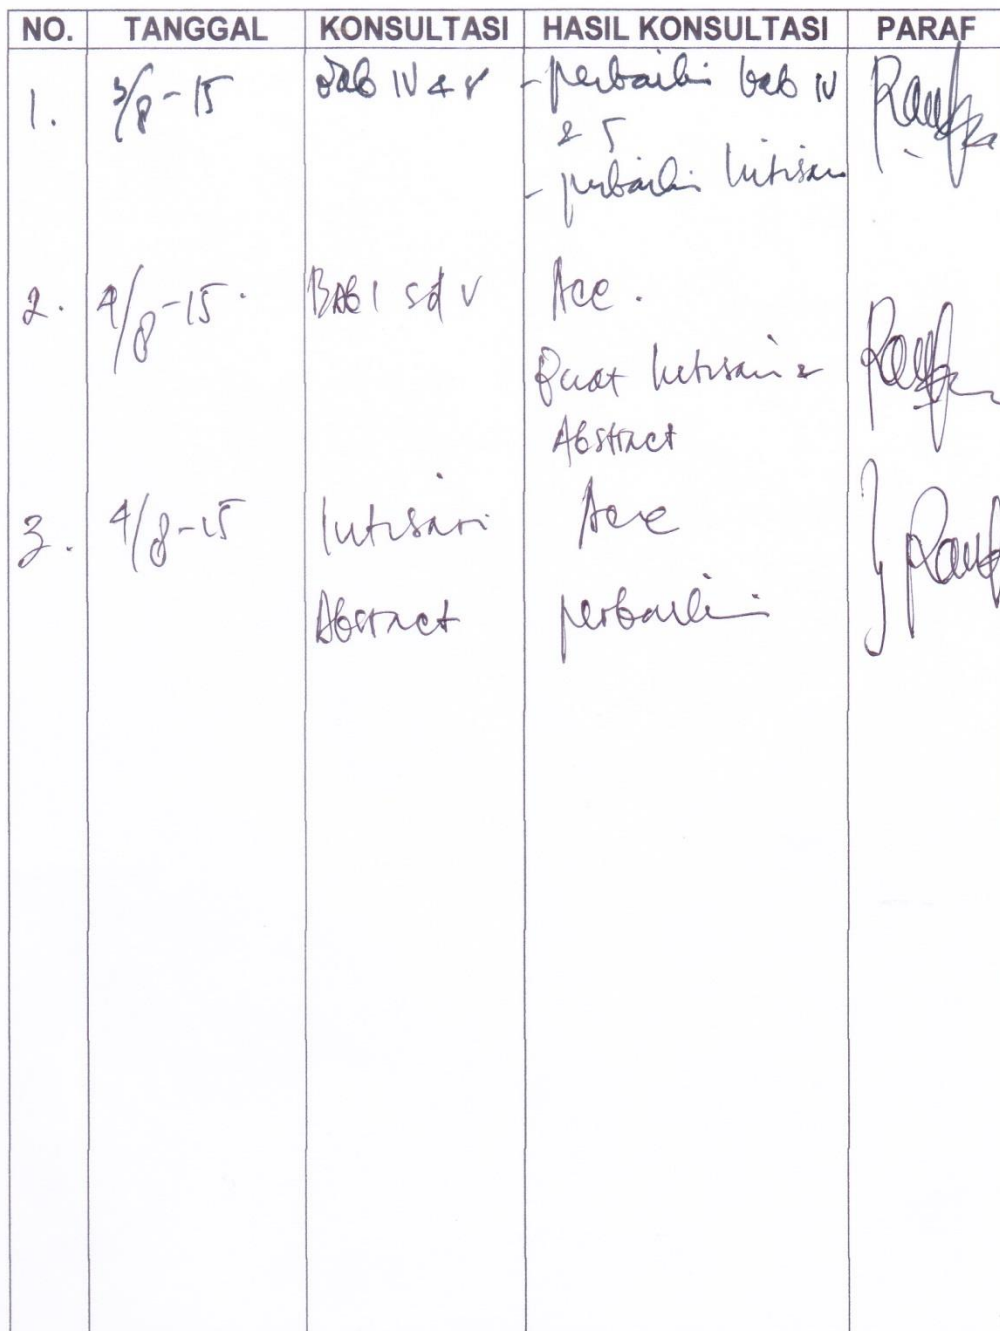 NO. TANGGAL KONSULTASI HASIL KONSULTASI PARAF
1. 3/8-15 Bab IV & V - perbaiki bab IV
& 5
- perbaiki Intisari
2. 4/8-15. BAB I sd V Acc.
Buat Intisari &
Abstract
3. 4/8-15 Intisari Acc
Abstract perbaiki